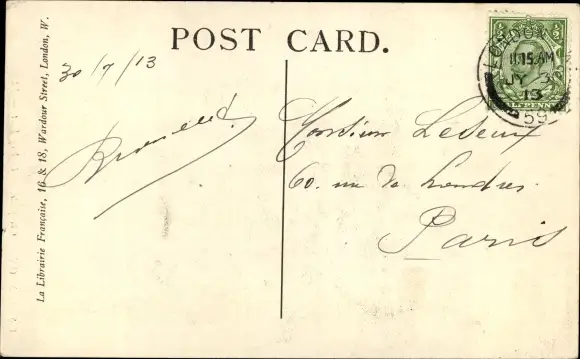 POST CARD.
30/7/13
LONDON. W.
11.15 AM
JY 3
13
59
½ PENNY
Monsieur Ledeux
60. rue de Londres.
Paris
La Librairie Française, 16 & 18, Wardour Street, London, W.